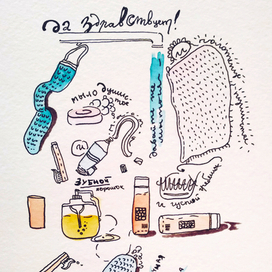 Да здравствует!
мыло душистое
и
и
полотенце пушистое
и
Зубной
порошок
и густой гребешок